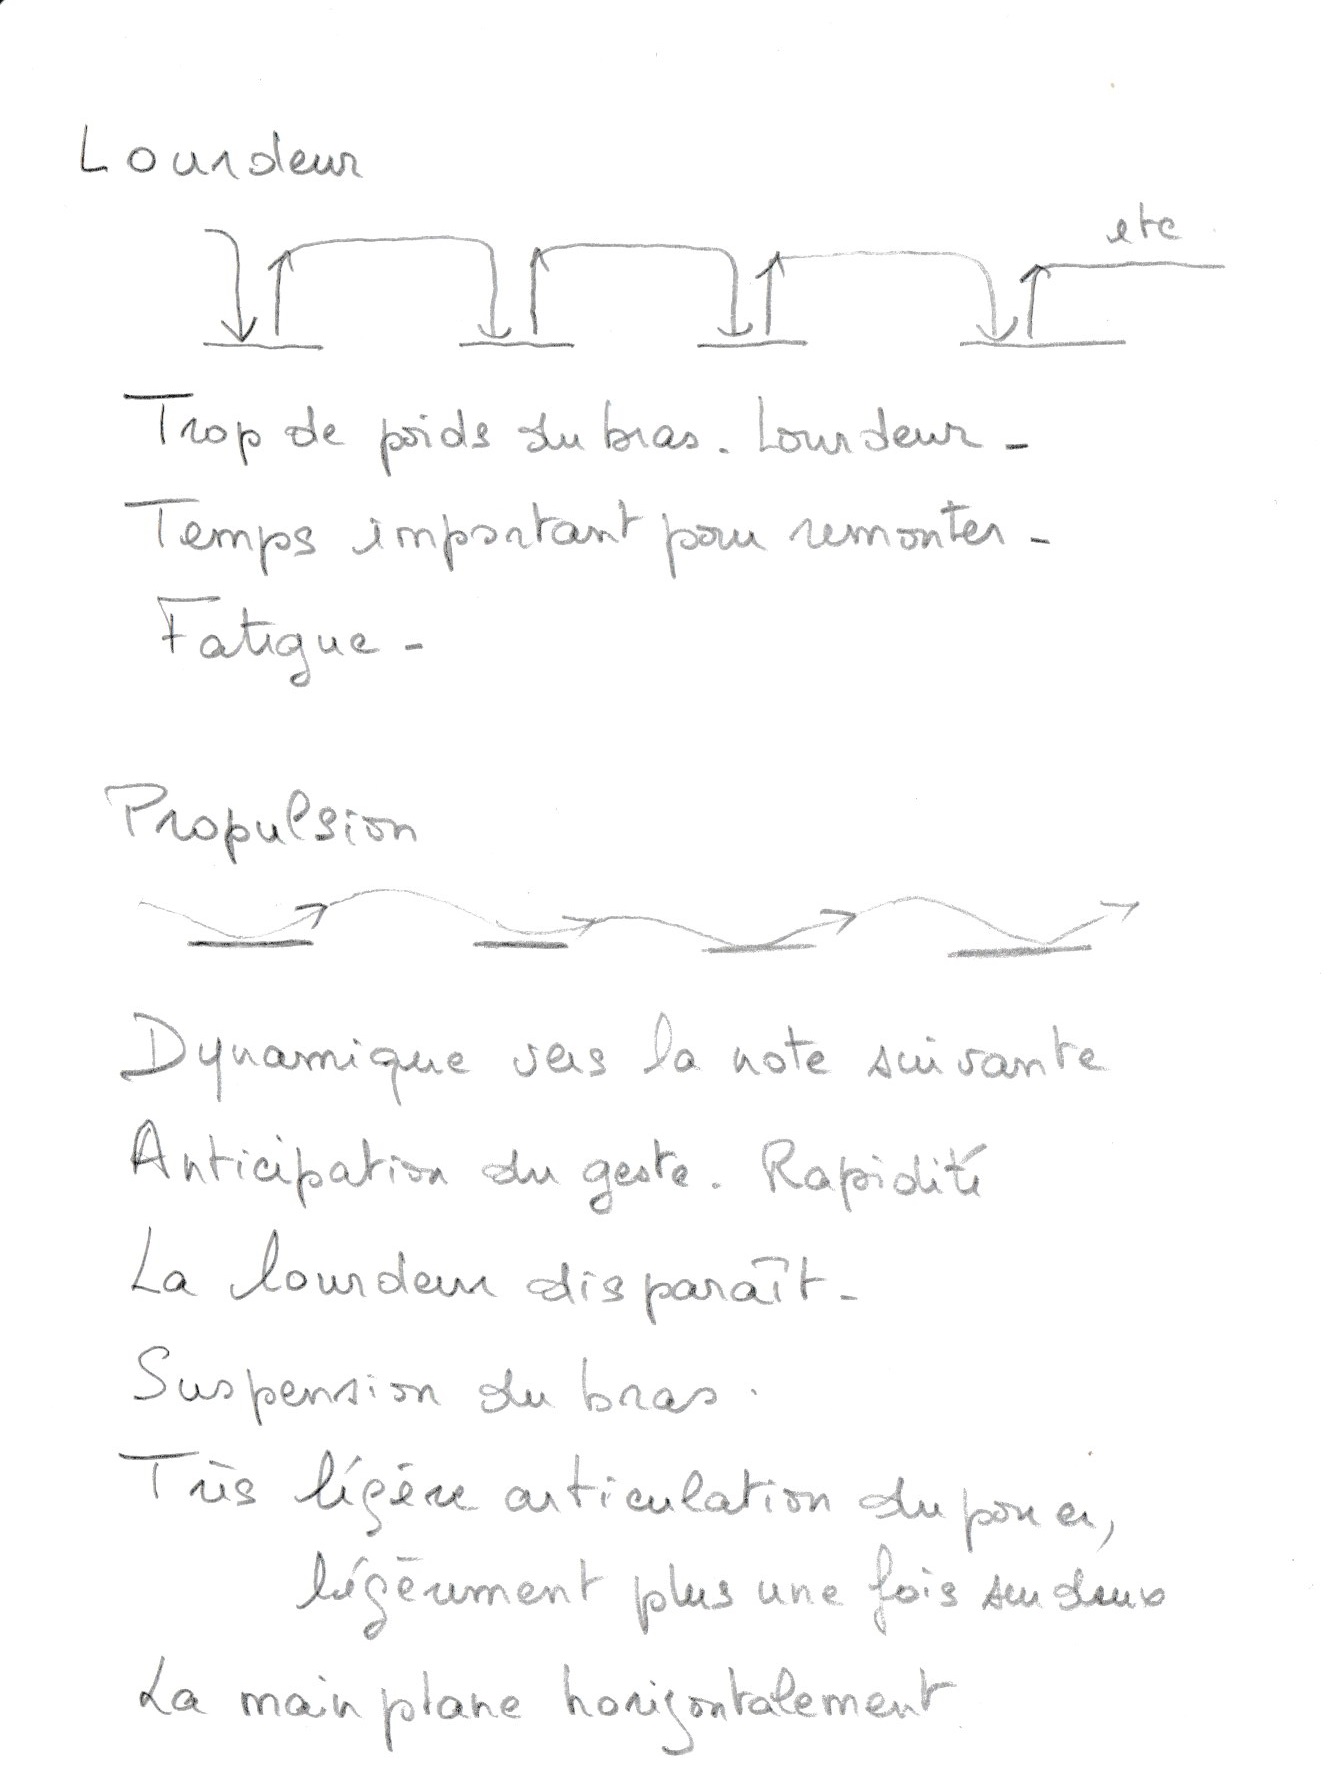 Lourdeur
etc
Trop de poids du bras. Lourdeur -
Temps important pour remonter -
Fatigue -
Propulsion
Dynamique vers la note suivante
Anticipation du geste. Rapidité
La lourdeur disparaît -
Suspension du bras.
Très légère articulation du poucei,
légèrement plus une fois sur deux
La main plane horizontalement